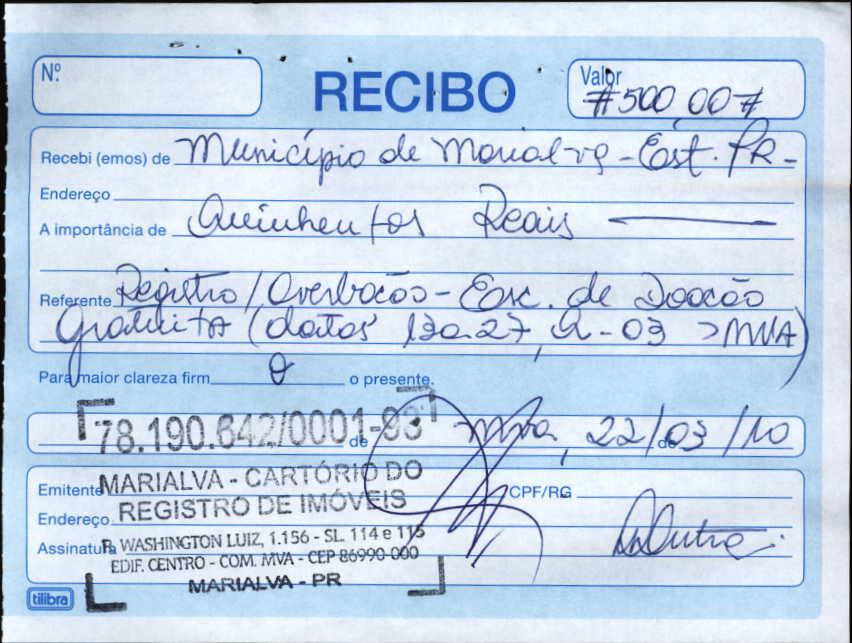 Nº
RECIBO
Valor
#500,00#
Recebi (emos) de Município de Marialva - Est. PR -
Endereço
A importância de Quinhentos Reais
Referente Registro/Averbação - Esc. de Doação
Gratuita (datas 13 a 27, Q-03 > MVA)
Para maior clareza firm o o presente.
78.190.642/0001-93
de Mva, 22/03/10
Emitente MARIALVA - CARTÓRIO DO
REGISTRO DE IMÓVEIS
CPF/RG
Endereço
Assinatura R. WASHINGTON LUIZ, 1.156 - SL. 114 e 115
EDIF. CENTRO - COM. MVA - CEP 86990-000
MARIALVA - PR
tilibra